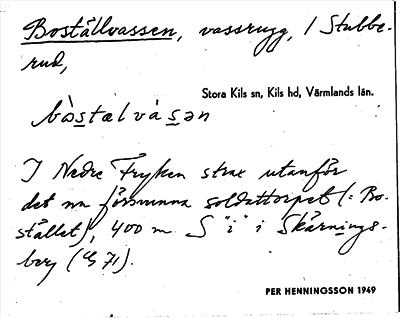 Boställvassen, vassrugg, / Stubbe-
rud,
Stora Kils sn, Kils hd, Värmlands län.
bò̀stælvàsən
I Nedre Fryken strax utanför
det nu försvunna soldattorpet (: Bo-
stället), 400 m S "i" i Skårnings-
berg (G 71).
PER HENNINGSSON 1949